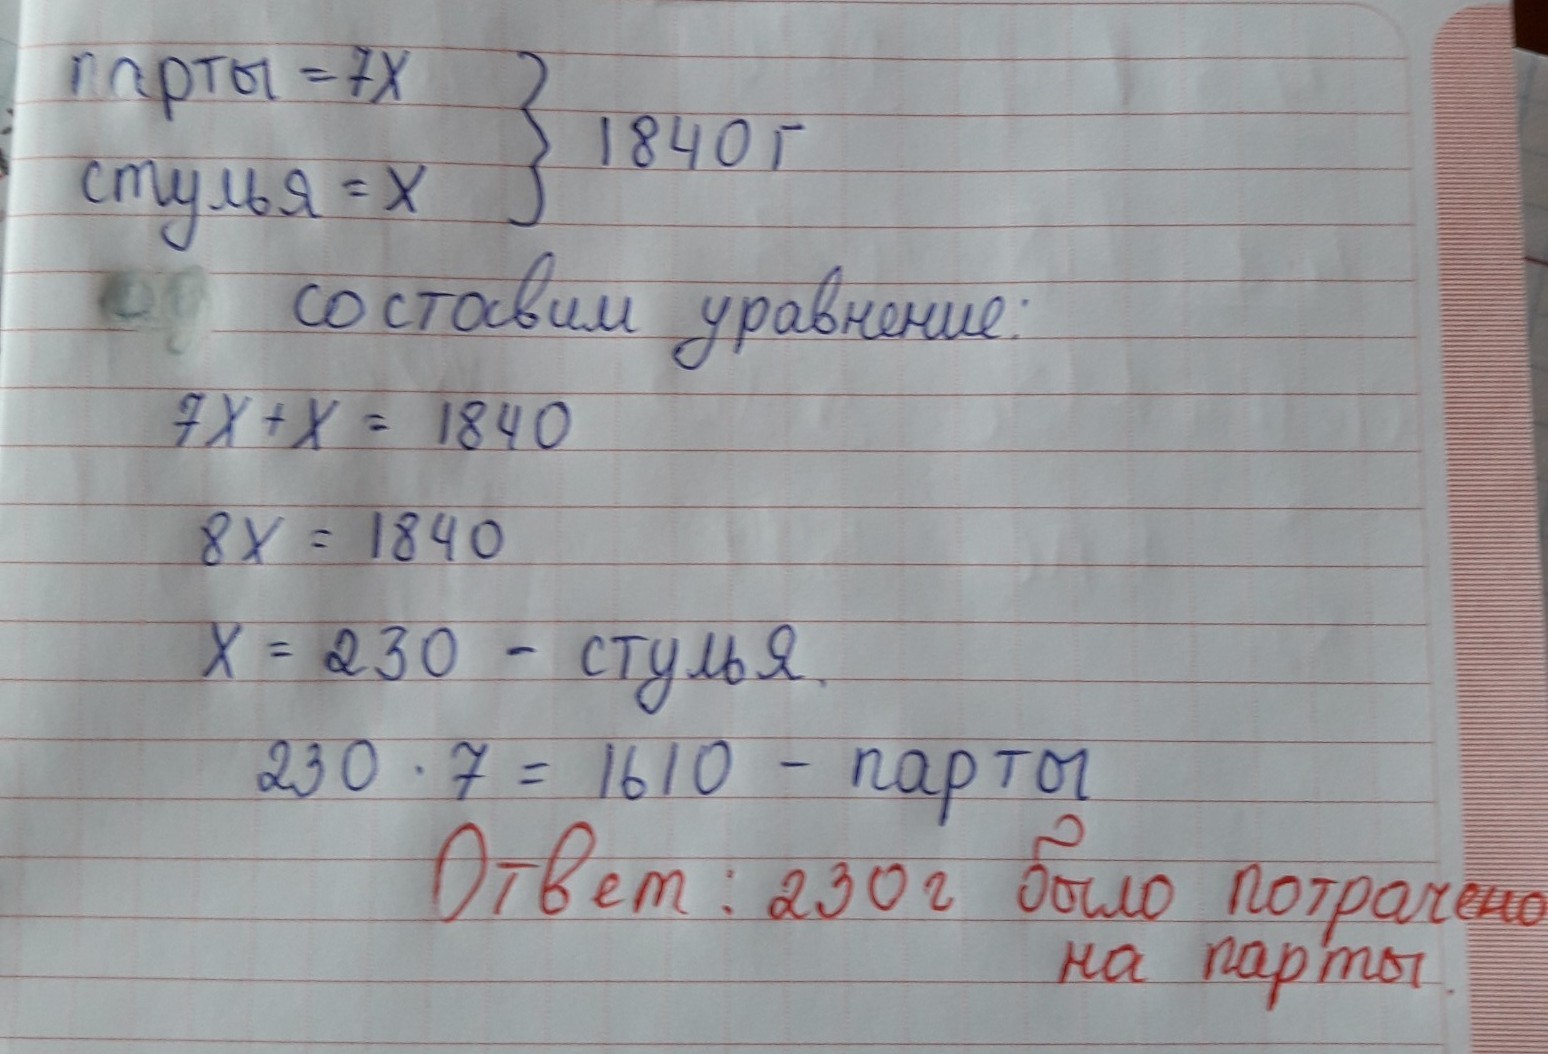 парты = 7х
стулья = х
1840 г
составим уравнение:
7х + х = 1840
8х = 1840
х = 230 - стулья.
230 · 7 = 1610 - парты
Ответ: 230 г было потрачено
на парты.